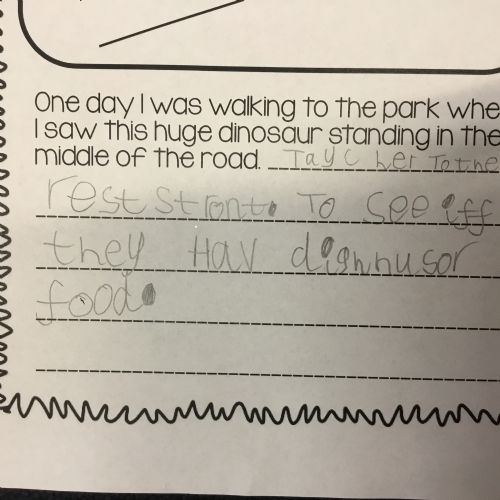 One day I was walking to the park whe
I saw this huge dinosaur standing in the
middle of the road. Tayc her To the
rest stront. To see iff
they Hav dignnusor
food.